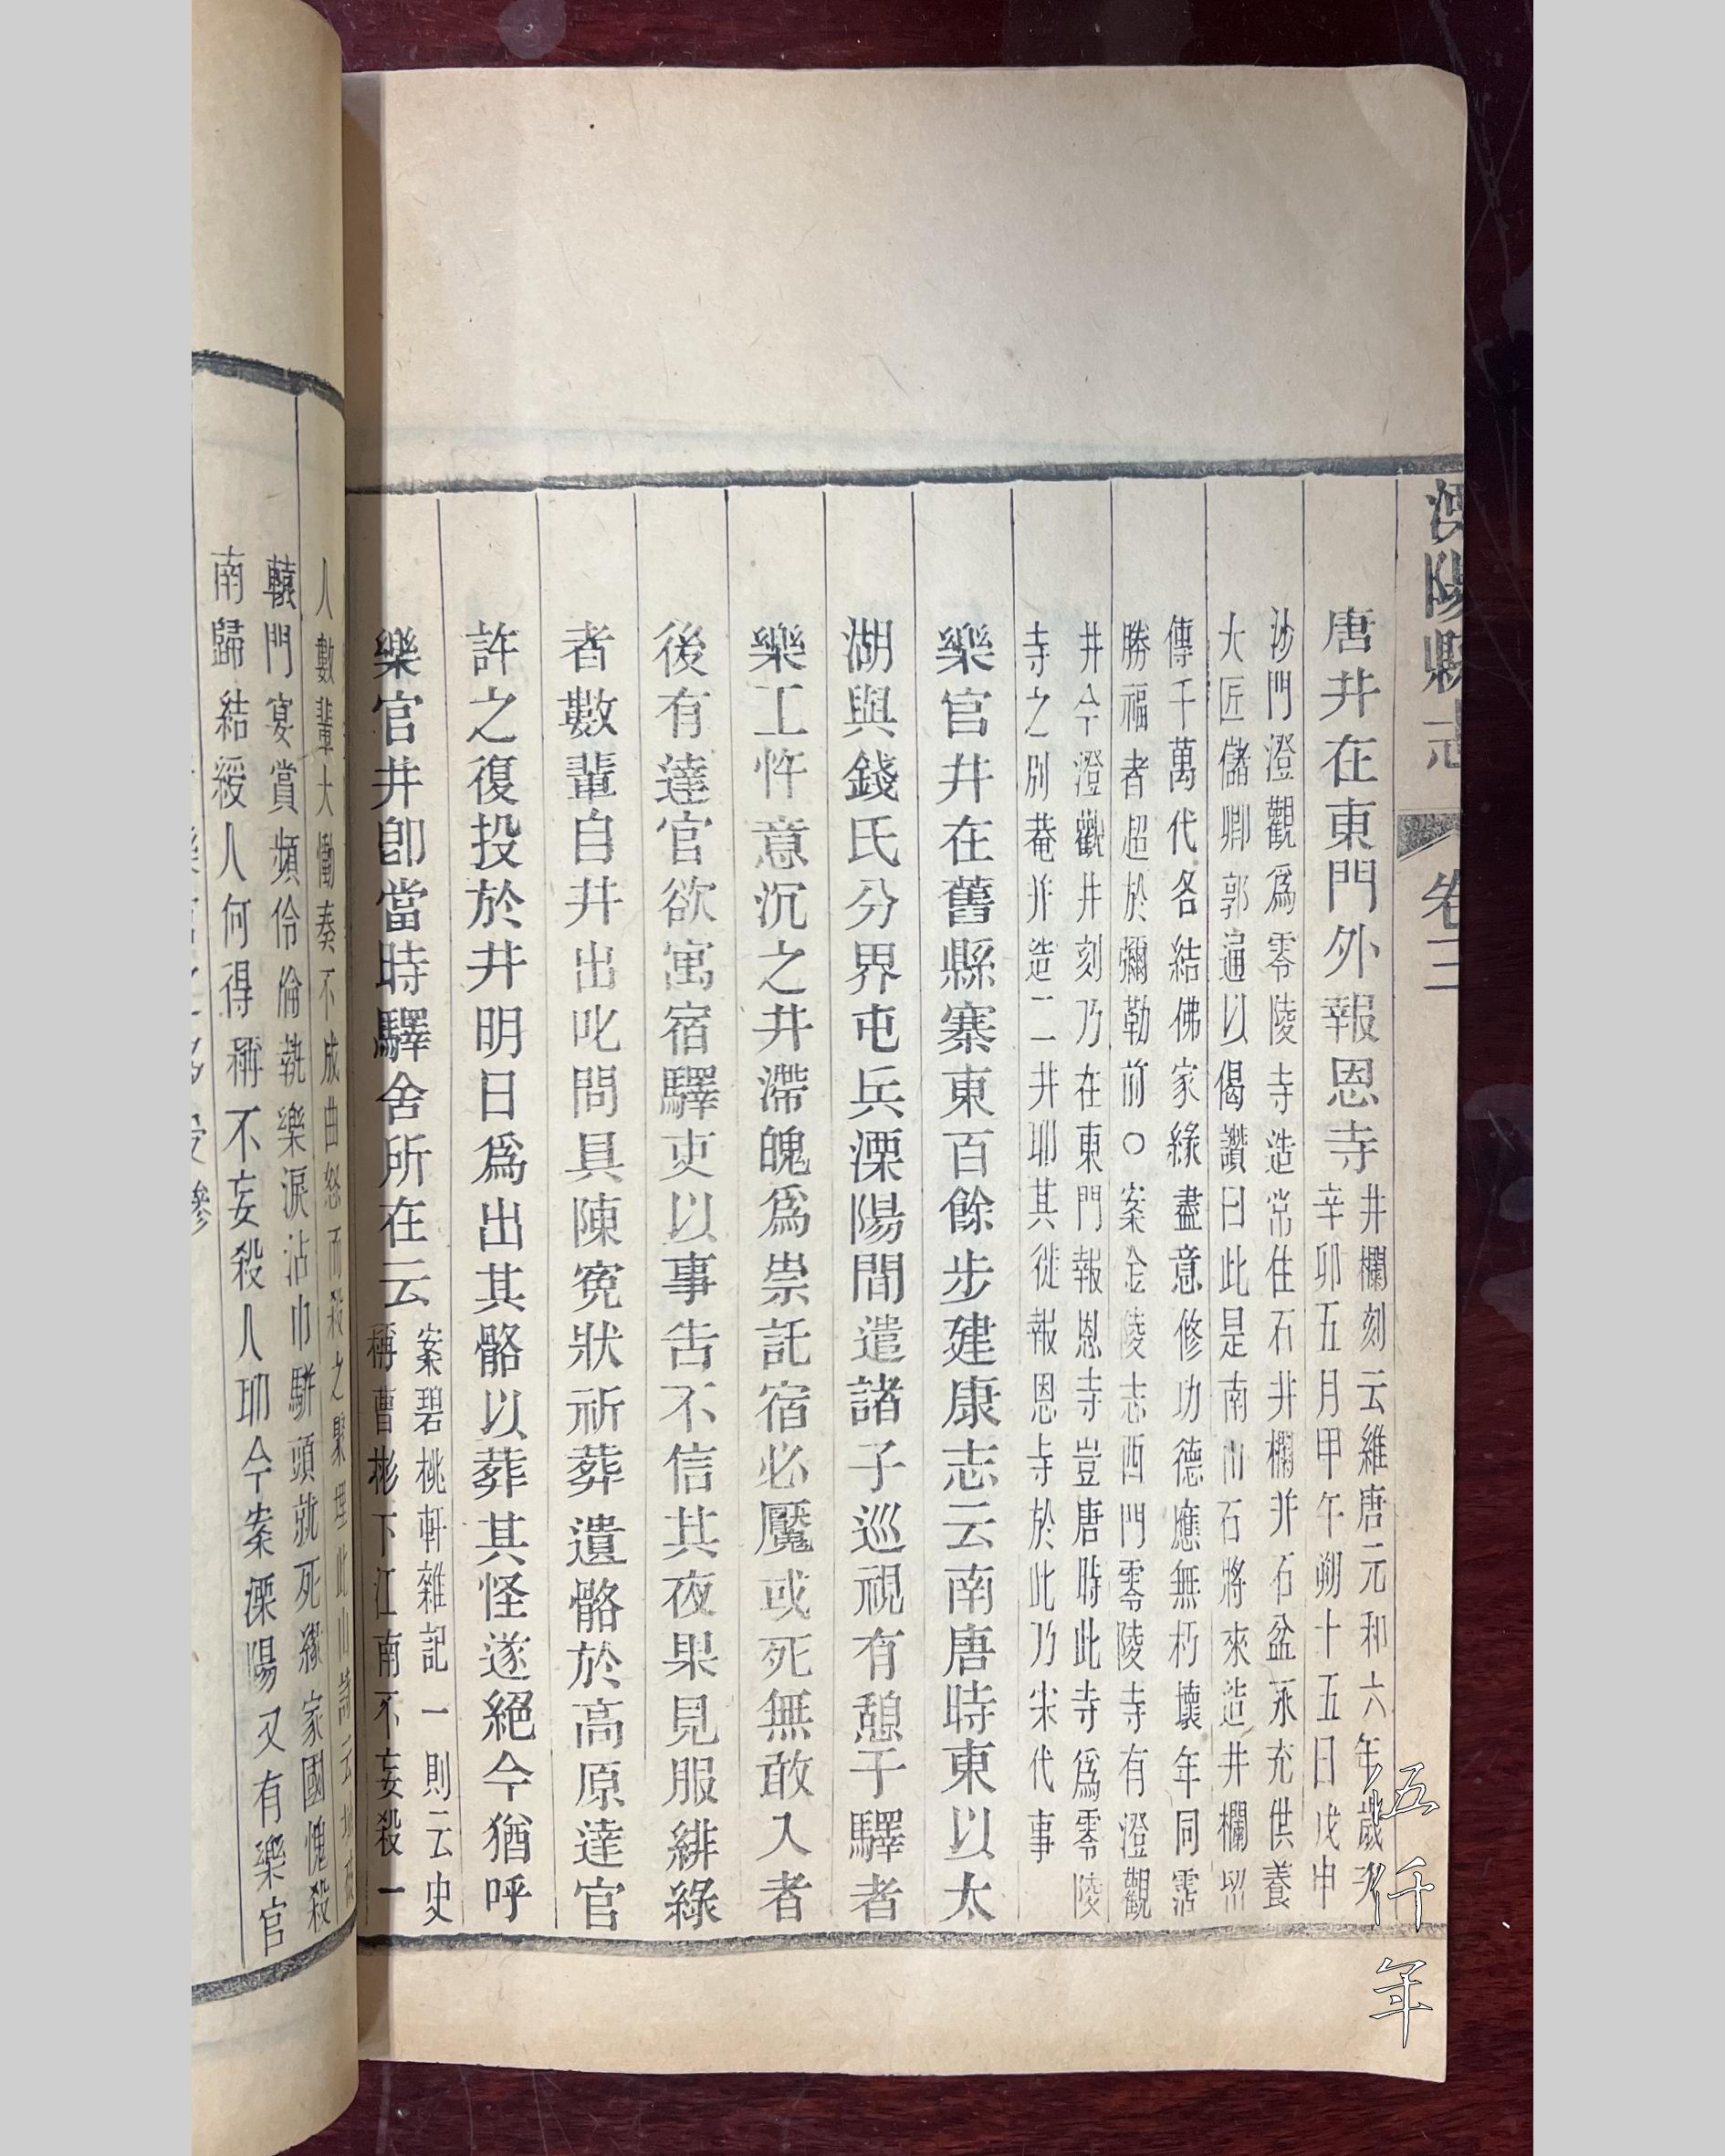 溧陽縣志
卷三
唐井在東門外報恩寺
井欄刻云維唐元和六年歲次
辛卯五月甲午朔十五日戊申
沙門澄觀爲零陵寺造常住石井欄并石盆永充供養
大匠儲卿郭通以偈讚曰此是南山石將來造井欄留
傳千萬代各結佛家緣盡意修功德應無朽壞年同霑
勝福者超於彌勒前○案金陵志西門零陵寺有澄觀
井今澄觀井刻乃在東門報恩寺豈唐時此寺爲零陵
寺之別菴并造二井耶其徙報恩寺於此乃宋代事
樂官井在舊縣寨東百餘步建康志云南唐時東以太
湖與錢氏分界屯兵溧陽間遣諸子巡視有憩于驛者
樂工忤意沉之井滯魄爲祟託宿必魘或死無敢入者
後有達官欲寓宿驛吏以事告不信其夜果見服緋綠
者數輩自井出叱問具陳冤狀祈葬遺骼於高原達官
許之復投於井明日爲出其骼以葬其怪遂絕今猶呼
樂官井卽當時驛舍所在云
案碧桃軒雜記一則云史
稱曹彬下江南不妄殺一
人數輩大慟奏不成曲怒而殺之聚埋此山詩云城破
轅門宴賞頻伶倫執樂淚沾巾駢頭就死緣家國愧殺
南歸結綬人何得稱不妄殺人耶今案溧陽又有樂官
伍仟年